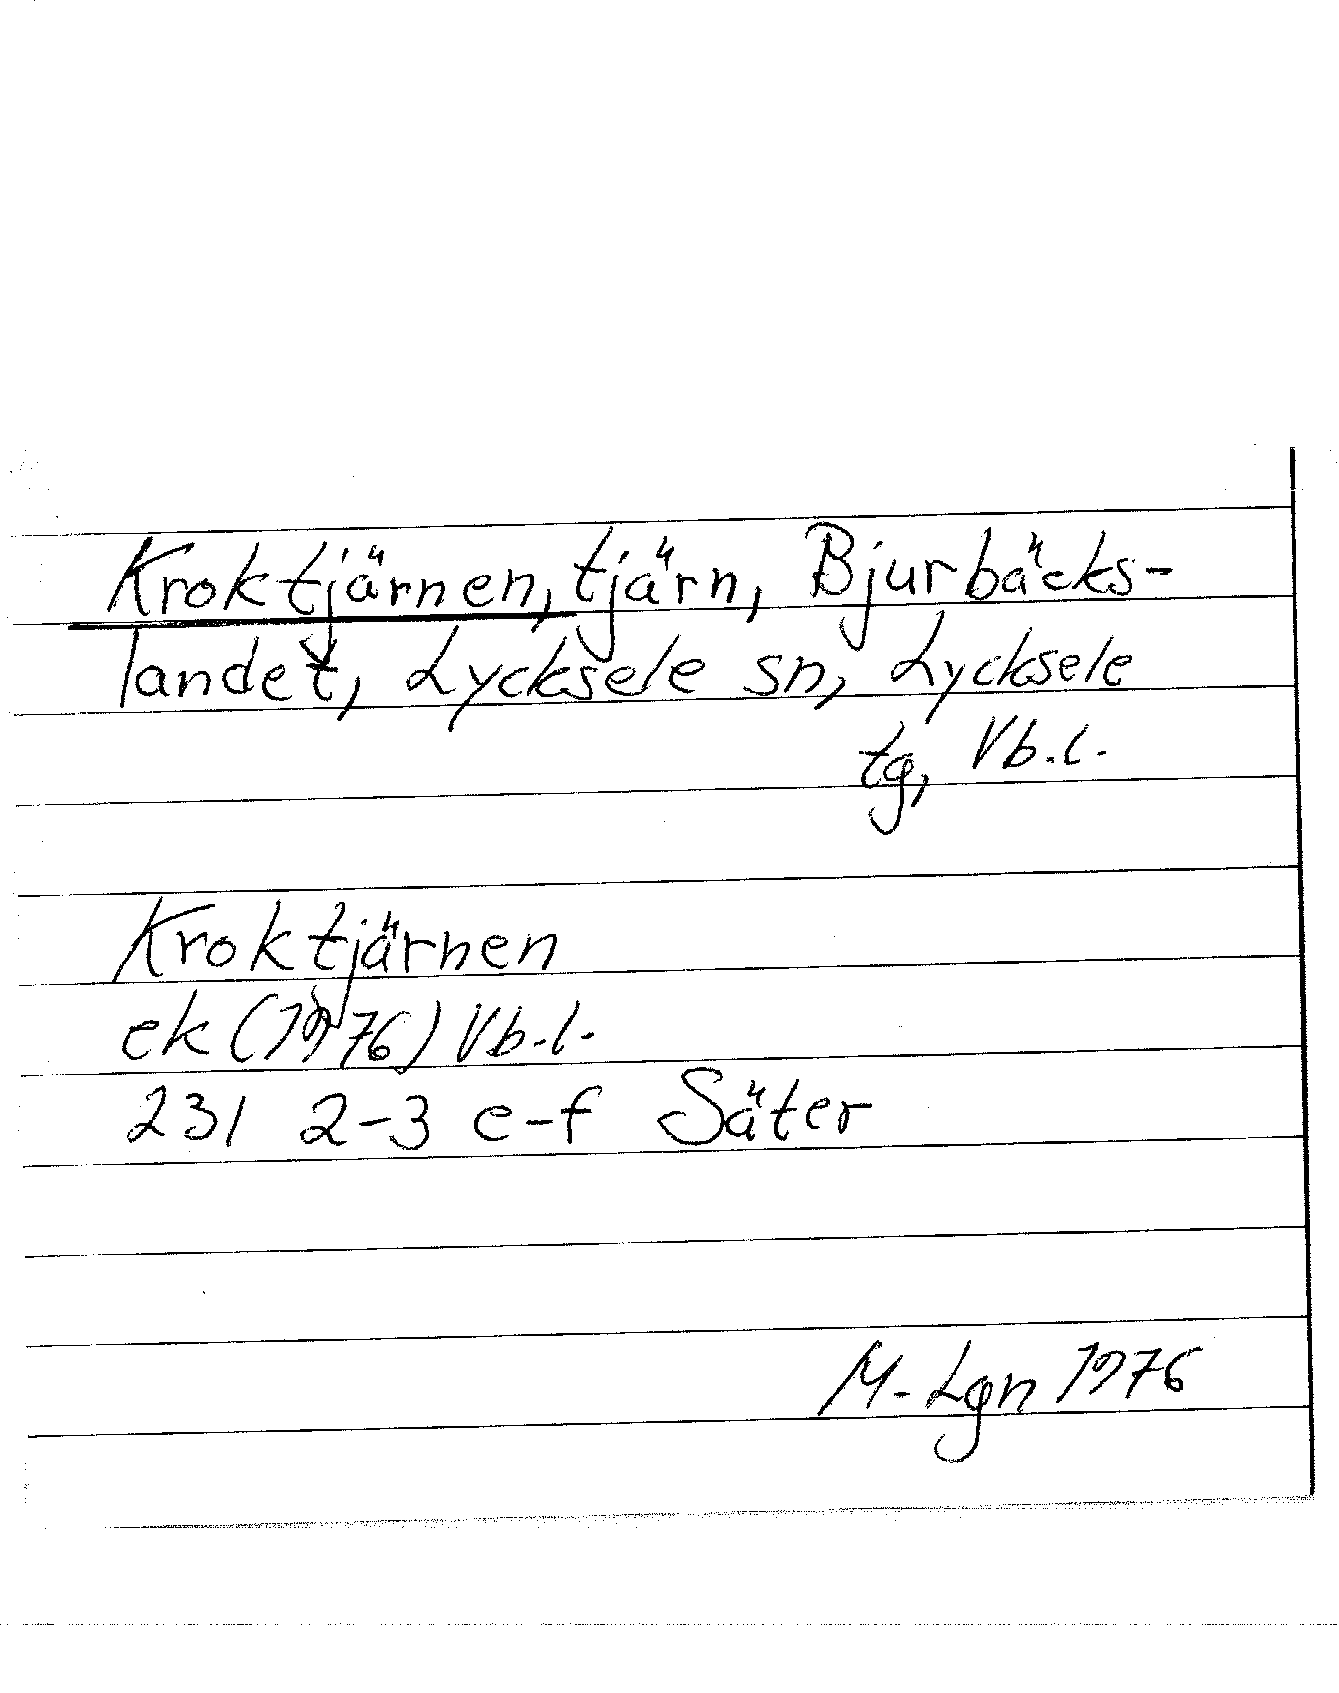 Kroktjärnen, tjärn, Bjurbäcks-
landet, Lycksele sn, Lycksele
tg, Vb.l.
Kroktjärnen
ek (1976) Vb.l.
231 2-3 e-f Säter
M-Lgn 1976